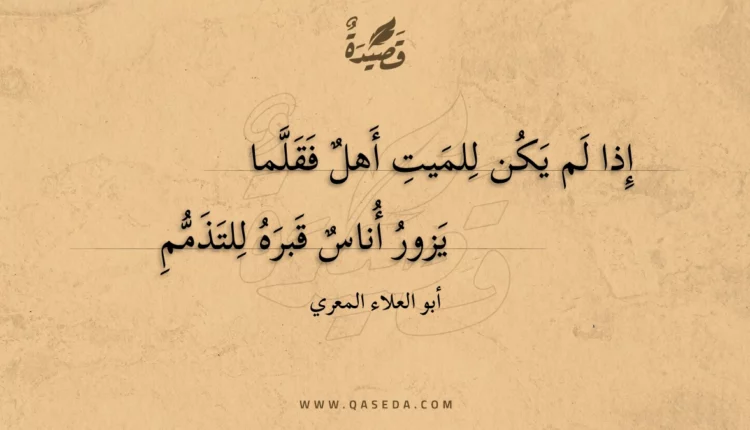 قَصِيدَةٌ
إِذا لَم يَكُن لِلمَيتِ أَهلٌ فَقَلَّما
يَزورُ أُناسٌ قَبرَهُ لِلتَذَمُّمِ
أبو العلاء المعري
WWW.QASEDA.COM